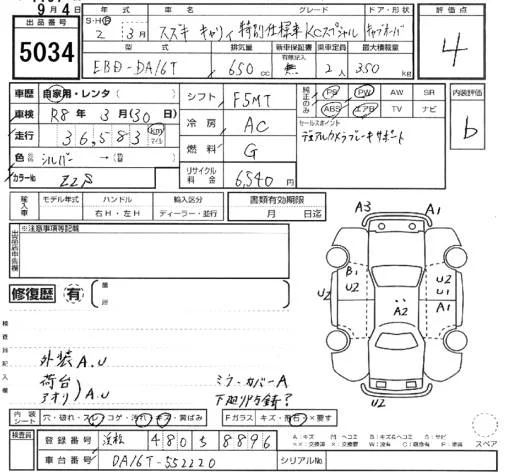 9月4日
出品番号 5034
年式 グレード ドア・形状 評価点
S・H・R 2年 3月 スズキ キャリイ 特別仕様車KCスペシャル キャブオーバ 4
型式 排気量 新車保証書 乗車定員 最大積載量
EBD-DA16T 650cc 無 2人 350kg
車歴 自家用・レンタ( )
シフト F5MT
純正のみ PS PW AW SR
ABS エアB TV ナビ
内装評価 b
車検 R8年 3月(30日)
冷房 AC
セールスポイント
デュアルカメラブレーキサポート
走行 36,583 km マイル
燃料 G
色 シルバー →( )
リサイクル料金 6,540円
カラーNo Z2S
輸入車 モデル年式 ハンドル 輸入区分 書類有効期限
右H・左H ディーラー・並行 月 日迄
※注意事項等記載
A3 A1
修復歴 有 箇所
B1
U2 U2
U2 U1
A2 A1
U2
検査員記入欄
外装A.U
荷台
アオリ)A.U
ミラーカバーA
内装シート 穴・破れ・スレ コゲ・汚れ・キズ・黄ばみ Fガラス キズ・飛石・×要す
検査員
登録番号 4805 8896
A:キズ M:ヘコミ B:キズ&ヘコミ S:サビ
スペア
車台番号 DA16T-552220 シリアルNo